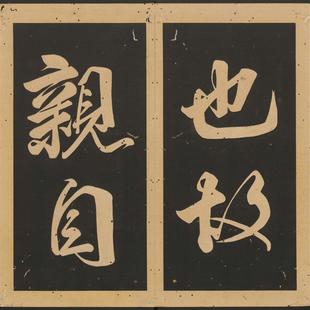 也故
親自